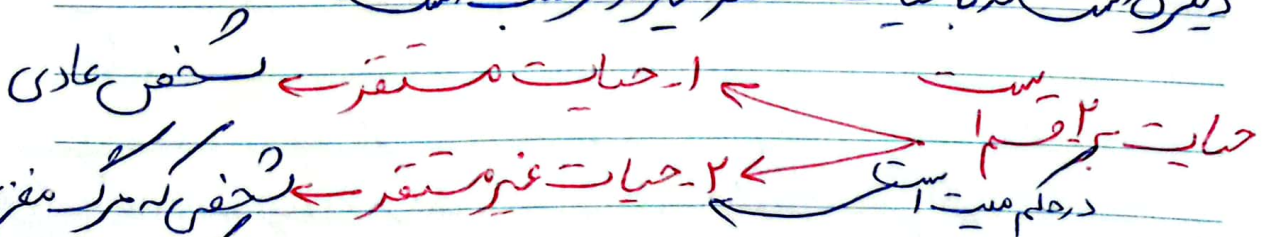 حیات بر ۲ قسم است
۱- حیات مستقر ← شخص عادی
۲- حیات غیر مستقر ← شخصی که مرگ مغز
در حکم میت است